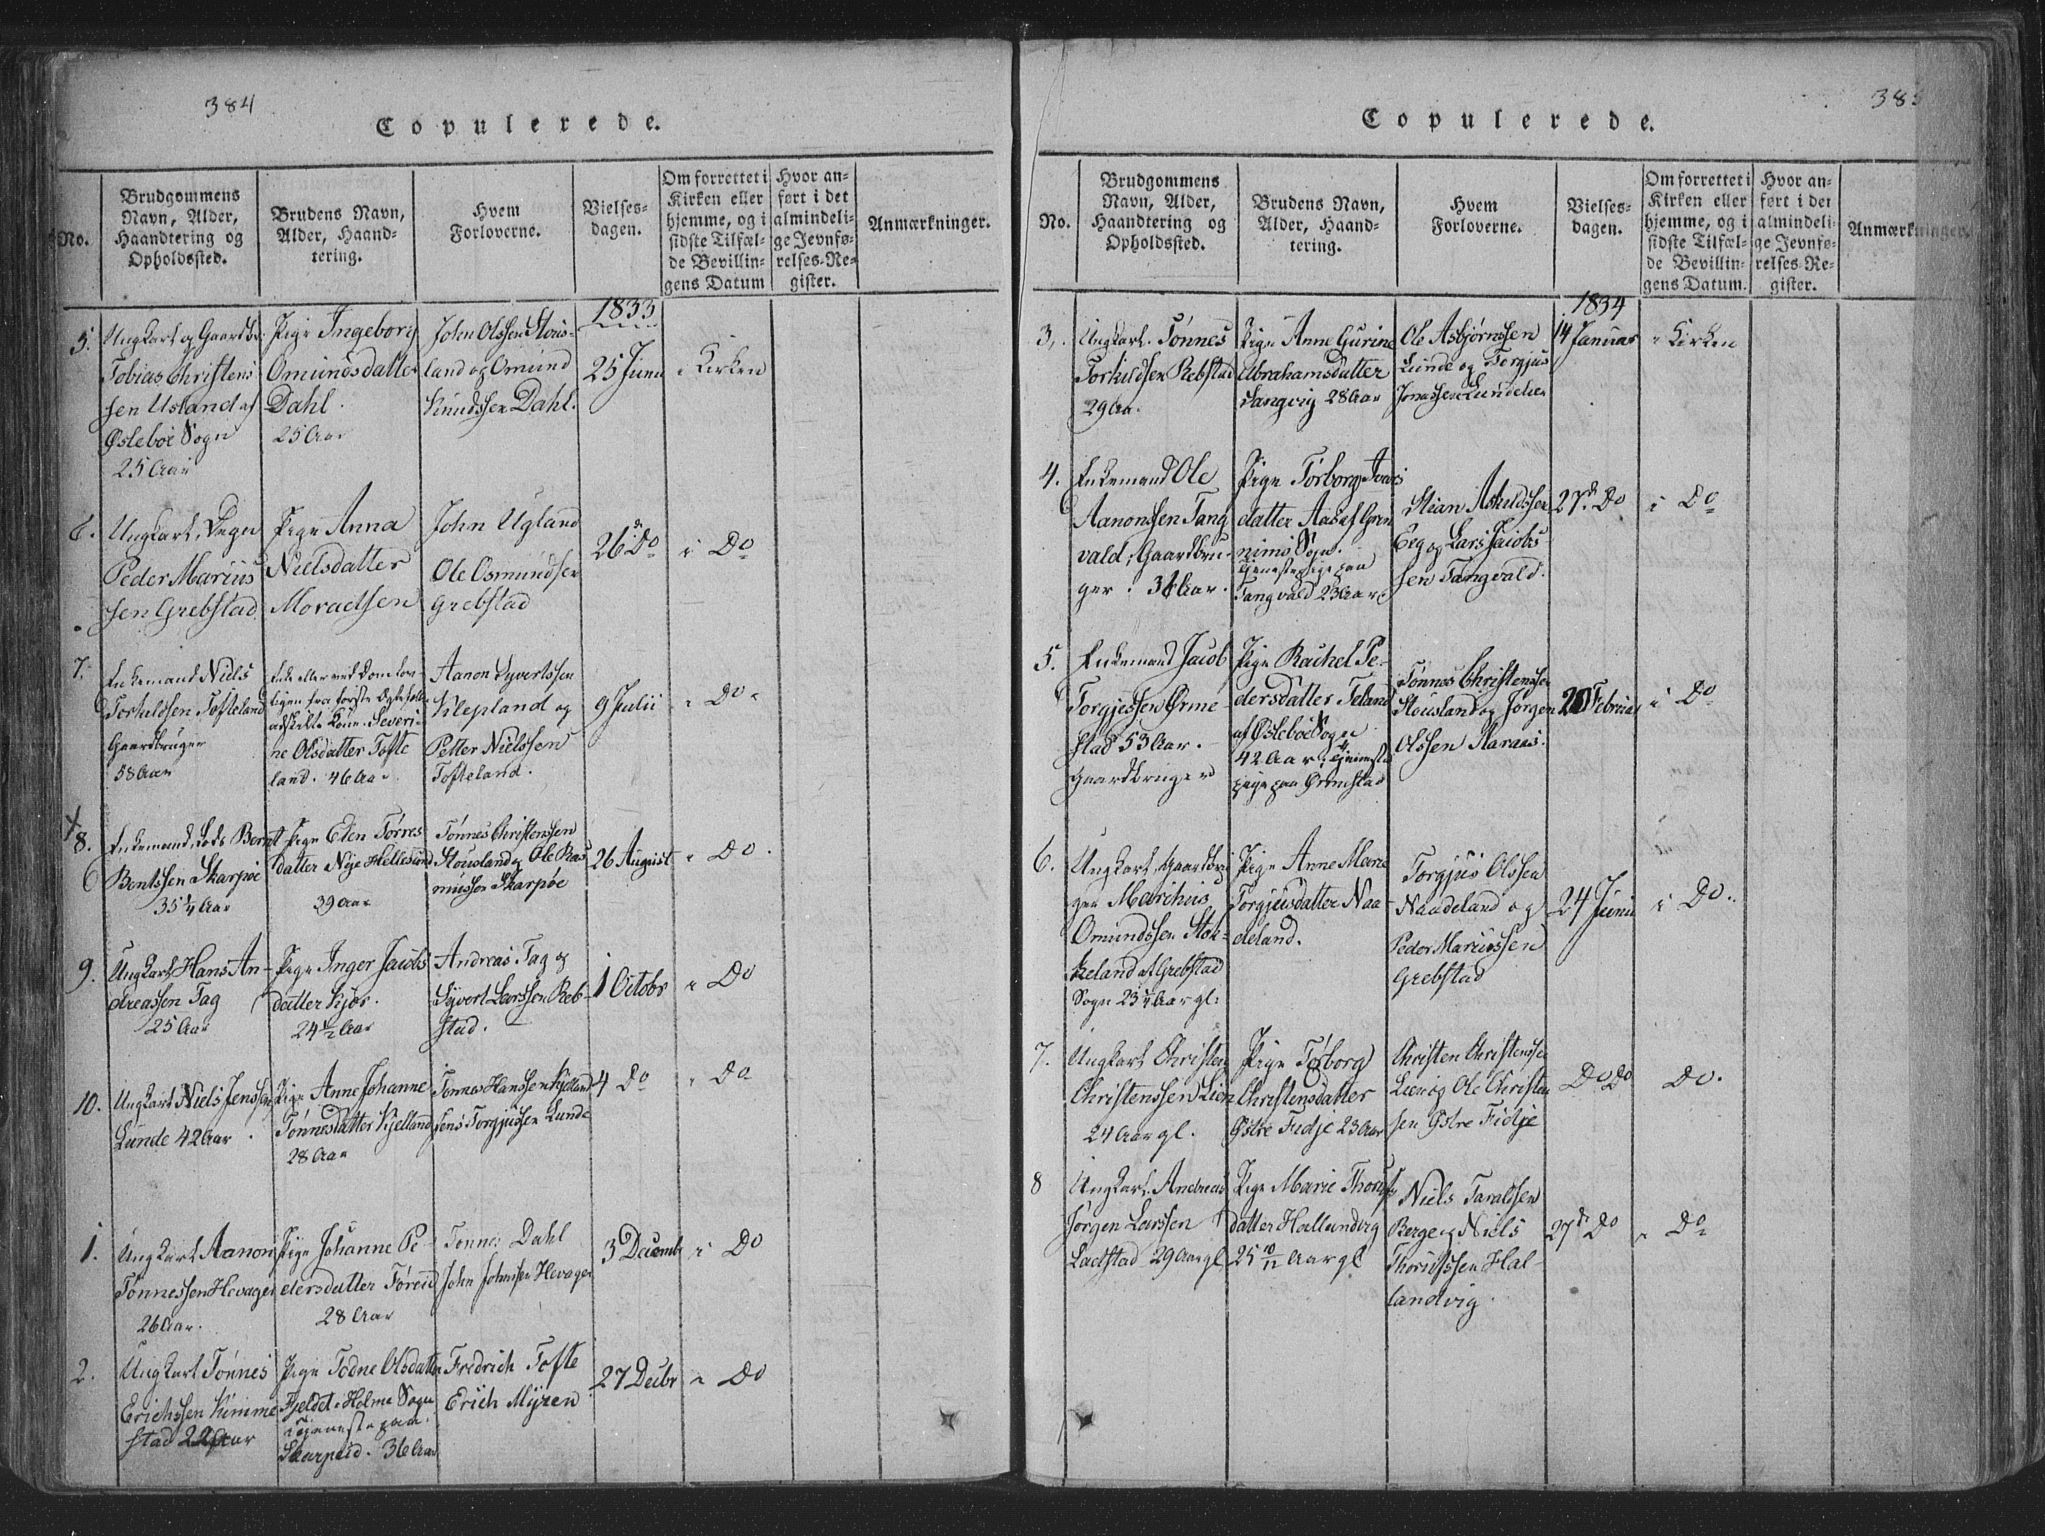 384
Copulerede.
No.
Brudgommens
Navn, Alder,
Haandtering og
Opholdssted.
Brudens Navn,
Alder, Haand-
tering.
Hvem
Forloverne.
Vielses-
dagen.
Om forrettet i
Kirken eller
hjemme, og i
sidste Tilfæl-
de Bevillin-
gens Datum
Hvor an-
ført i det
almindeli-
ge Jevnfø-
relses-Re-
gister.
Anmærkninger.
1833
5.
Ungkarl og Gaardbr.
Tobias Christens
sen Usland af
Øslebøe Sogn
25 Aar
Pige Ingeborg
Omundsdatter
Dahl.
25 Aar
John Olssen Stous-
land og Omund
Knudssen Dahl.
25 Juni
i Kirken
6.
Ungkarl,
Peder Marius
sen Grebstad
Pige Anna
Nielsdatter
John Ugland
Ole Osmundsen
Grebstad
26 Do
i Do
7.
Enkemand Niels
Torkildsen Tofteland
Gaardbruger
58 Aar
Severi-
ne Olsdatter Tofte
land. 46 Aar
Aanon Syvertssen
Klepland og
Petter Nielssen
Tofteland.
9 Julii
i Do
8.
Enkemand, Lods Bernt
Bentssen Skarpøe
35 1/4 Aar
Pige Elen Tørres
datter Nye Hellesund
39 Aar
Tønnes Christenssen
Stousland og Ole Ras
mussen Skarpøe
26 August
i Do.
9.
Ungkarl Hans An-
dreassen Tag
25 Aar
Pige Inger Jacobs
datter Kjøs.
24 1/2 Aar
Andreas Tag og
Syvert Larssen Reb-
stad.
1 Octobr
i Do
10.
Ungkarl Niels Jenssen
Lunde 42 Aar.
Pige Anne Johanne
Tønnesdatter Kjelland
28 Aar
Tønnes Hanssen Kjelland
Jens Torgjussen Lunde
4 Do
i Do
1.
Ungkarl Aanon
Tønnessen Hevager
26 Aar.
Pige Johanne Pe-
dersdatter
28 Aar
Tønnes Dahl
John Johnsen Hevager
3 Decembr
i Do
2.
Ungkarl Tønnes
Erichssen Kimme
stad 22 Aar
Pige Todne Olsdatter
Fjeldet i Holme Sogn
Tjeneste paa
36 Aar
Fredrich Tofte
Erich Myren
27 Decbr
i Do
385
Copulerede.
No.
Brudgommens
Navn, Alder,
Haandtering og
Opholdssted.
Brudens Navn,
Alder, Haand-
tering.
Hvem
Forloverne.
Vielses-
dagen.
Om forrettet i
Kirken eller
hjemme, og i
sidste Tilfæl-
de Bevillin-
gens Datum.
Hvor an-
ført i det
almindeli-
ge Jevnfø-
relses-Re-
gister.
Anmærkninger.
1834
3.
Ungkarl. Tønnes
Torkildsen Rebstad
29 Aar.
Pige Anne Gurine
Abrahamsdatter
Langvig 28 Aar
Ole Asbjørnssen
Lunde og Torgjus
Jonassen
14 Januar
i Kirken
4.
Enkemand Ole
Aanonssen Tang
vald, Gaardbru-
ger. 34 Aar.
Pige Torborg
datter Aas af Grin
nims Sogn.
Tjenestepige paa
Tangvald 23 Aar
Stian Askildssen
Eeg og Lars Jacobs
sen Tangvald.
27de Do
i Do
5.
Enkemand Jacob
Torgjessen Orme
stad 53 Aar.
Gaardbruger
Pige Rachel Pe-
dersdatter
af Øslebøe Sogn
42 Aar, Tjeneste
pige paa Ormestad
Tønnes Christenssen
Stousland og Jørgen
Olssen
20 Februar
i Do
6.
Ungkarl, Gaardbru
ger Mathius
Omundssen Stok-
keland af Grebstad
Sogn 23 1/4 Aar gl:
Pige Anne Marie
Torgjusdatter Naa-
deland.
Torgjus Olssen
Naadeland og
Peder Mariussen
Grebstad
24 Juni
i Do.
7.
Ungkarl Christen
Christenssen Lien
24 Aar gl.
Pige Torborg
Christensdatter
Østre Fidje 23 Aar
Christen Christenssen
Lien og Ole Christen
sen Østre Fidje
Do Do
Do.
8
Ungkarl. Andreas
Jørgen Larssen
29 Aar gl
Pige Marie
datter Hallandvig
25 10/12 Aar gl
Niels Taraldsen
Berge og Niels
Hal-
landvig.
27de Do
i Do